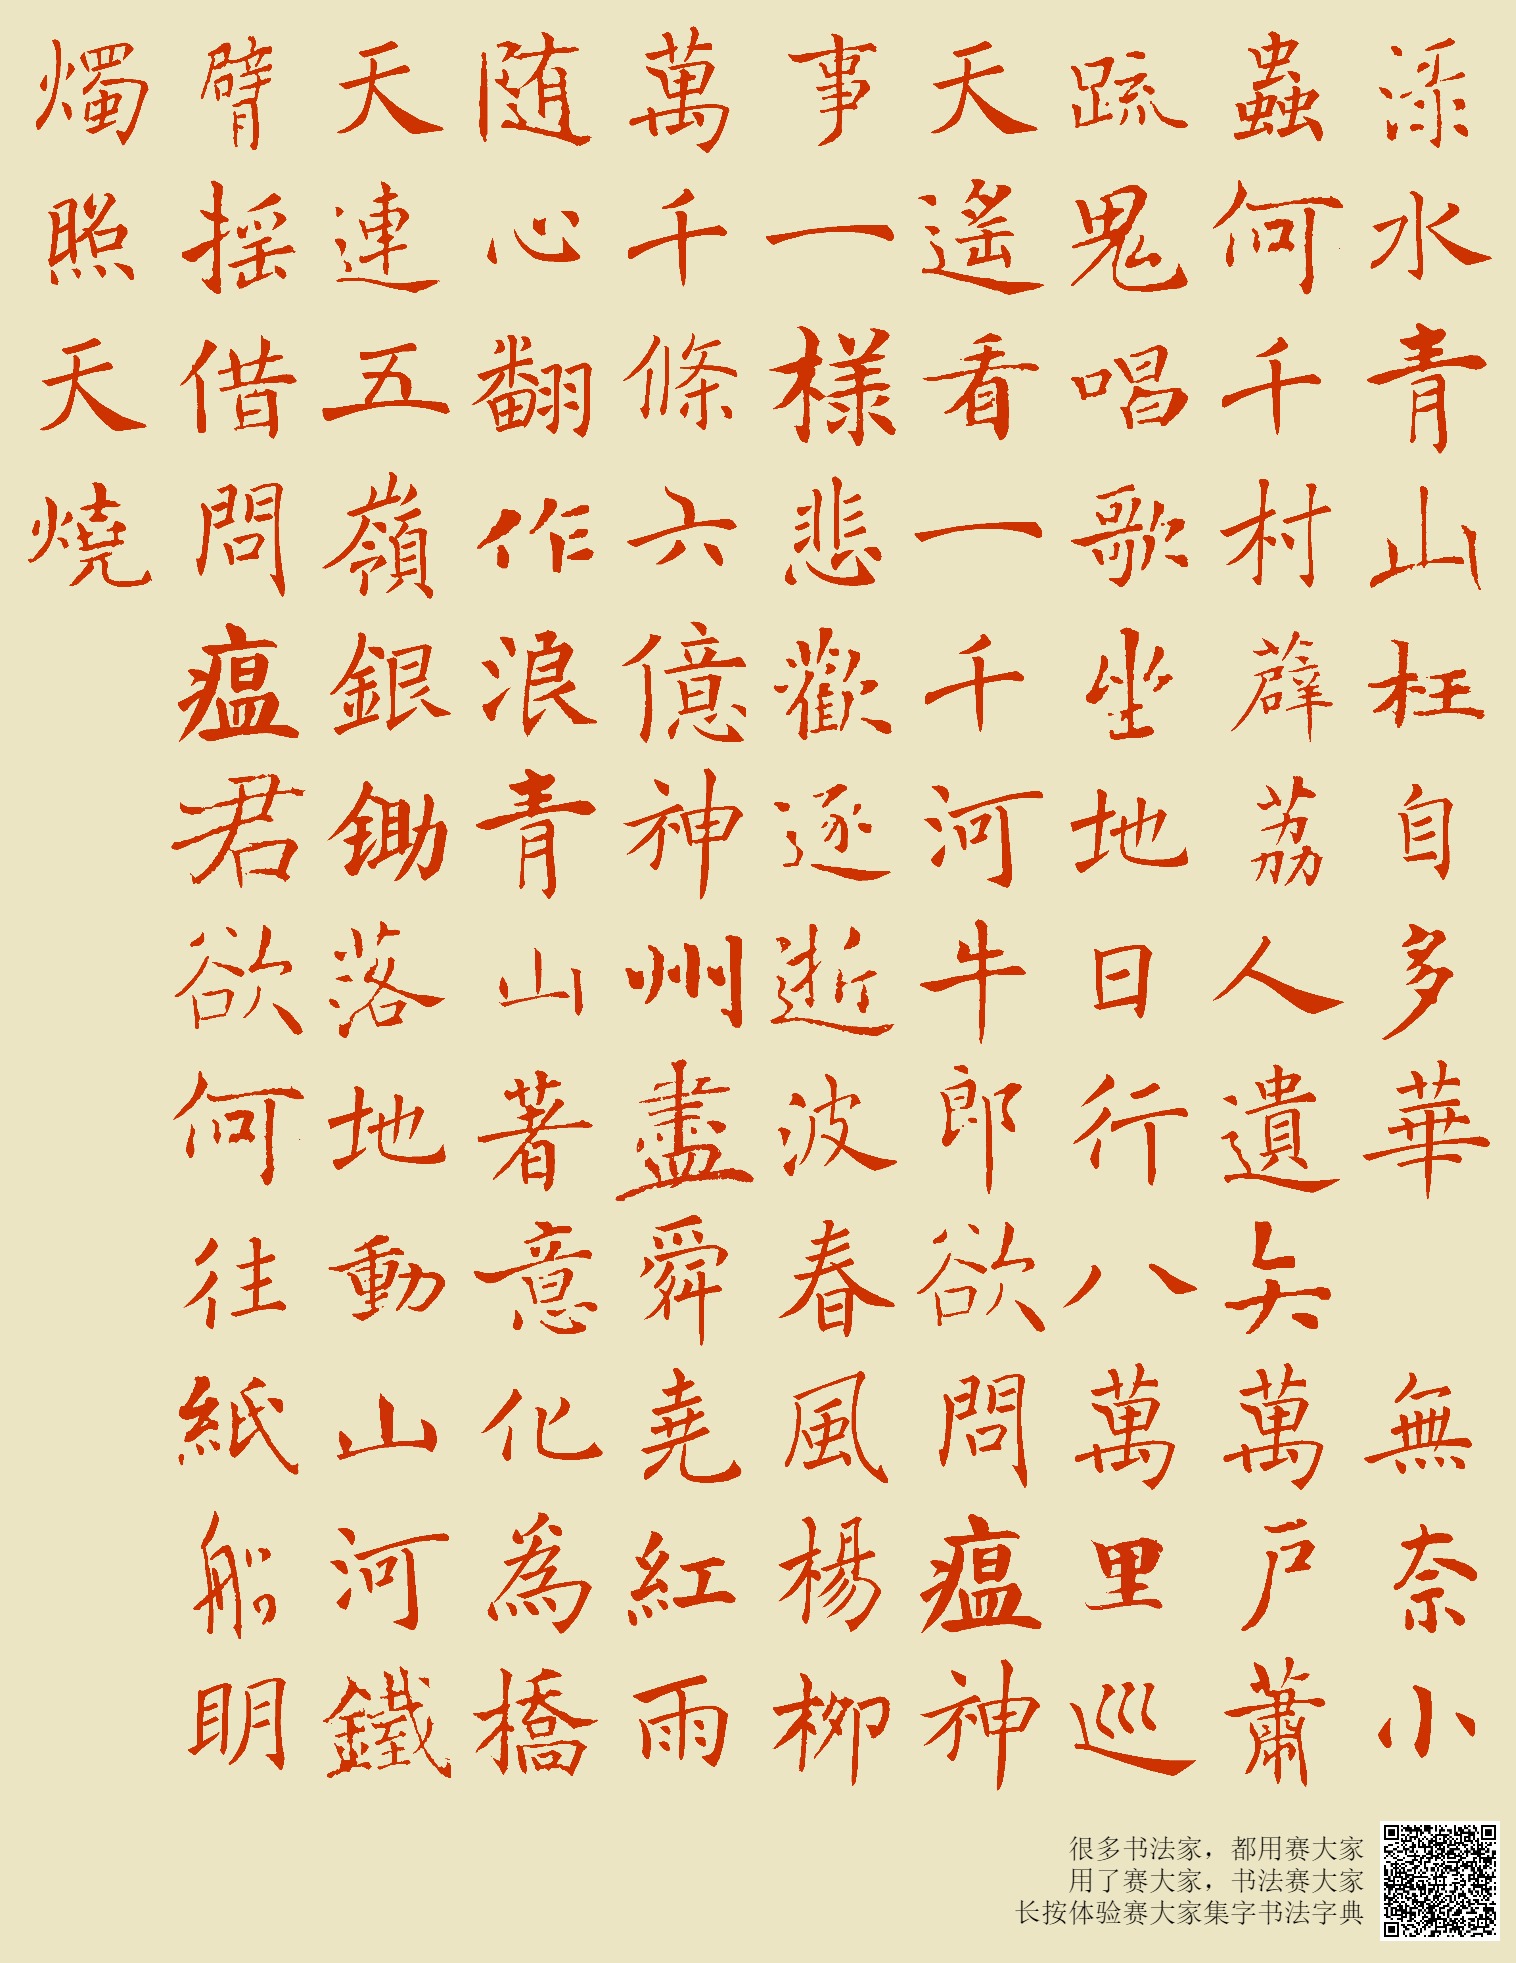 渌水青山枉自多華 無奈小
蟲何千村薜荔人遺矢萬户蕭
疏鬼唱歌坐地日行八萬里巡
天遙看一千河牛郎欲問瘟神
事一様悲歡逐逝波春風楊柳
萬千條六億神州盡舜堯紅雨
随心翻作浪青山著意化為橋
天連五嶺銀鋤落地動山河鐵
臂摇借問瘟君欲何往紙船明
燭照天燒
很多书法家，都用赛大家
用了赛大家，书法赛大家
长按体验赛大家集字书法字典